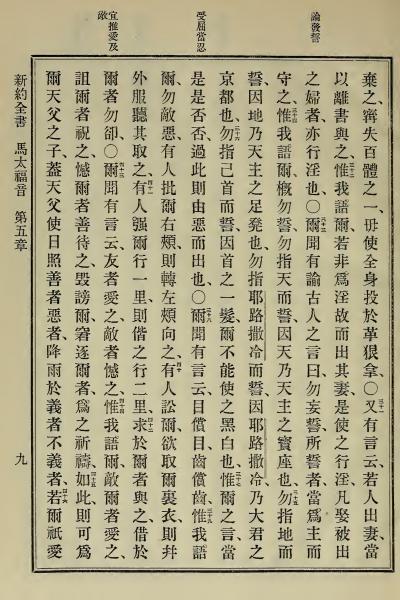 論發誓
受屈當忍
宜推愛及
敵
棄之、寧失百體之一、毋使全身投於革狠拿、○三十一又有言云、若人出妻、當
以離書與之、三十二惟我語爾、若非為淫故而出其妻、是使之行淫、凡娶被出
之婦者、亦行淫也、○三十三爾聞有諭古人之言曰、勿妄誓、所誓者、當為主而
守之、三十四惟我語爾、概勿誓、勿指天而誓、因天乃天主之寶座也、三十五勿指地而
誓、因地乃天主之足凳也、勿指耶路撒冷而誓、因耶路撒冷、乃大君之
京都也、三十六勿指己首而誓、因首之一髮、爾不能使之黑白也、三十七惟爾之言、當
是是否否、過此則由惡而出也、○三十八爾聞有言云、目償目、齒償齒、三十九惟我語
爾、勿敵惡、有人批爾右頰、則轉左頰向之、四十有人訟爾、欲取爾裏衣、則并
外服聽其取之、四十一有人強爾行一里、則偕之行二里、四十二求於爾者與之、借於
爾者勿卻、○四十三爾聞有言云、友者愛之、敵者憾之、四十四惟我語爾、敵爾者愛之、
詛爾者祝之、憾爾者善待之、毀謗爾窘逐爾者、為之祈禱、四十五如此則可為
爾天父之子、蓋天父使日照善者惡者、降雨於義者不義者、四十六若爾祇愛
新約全書 馬太福音 第五章 九